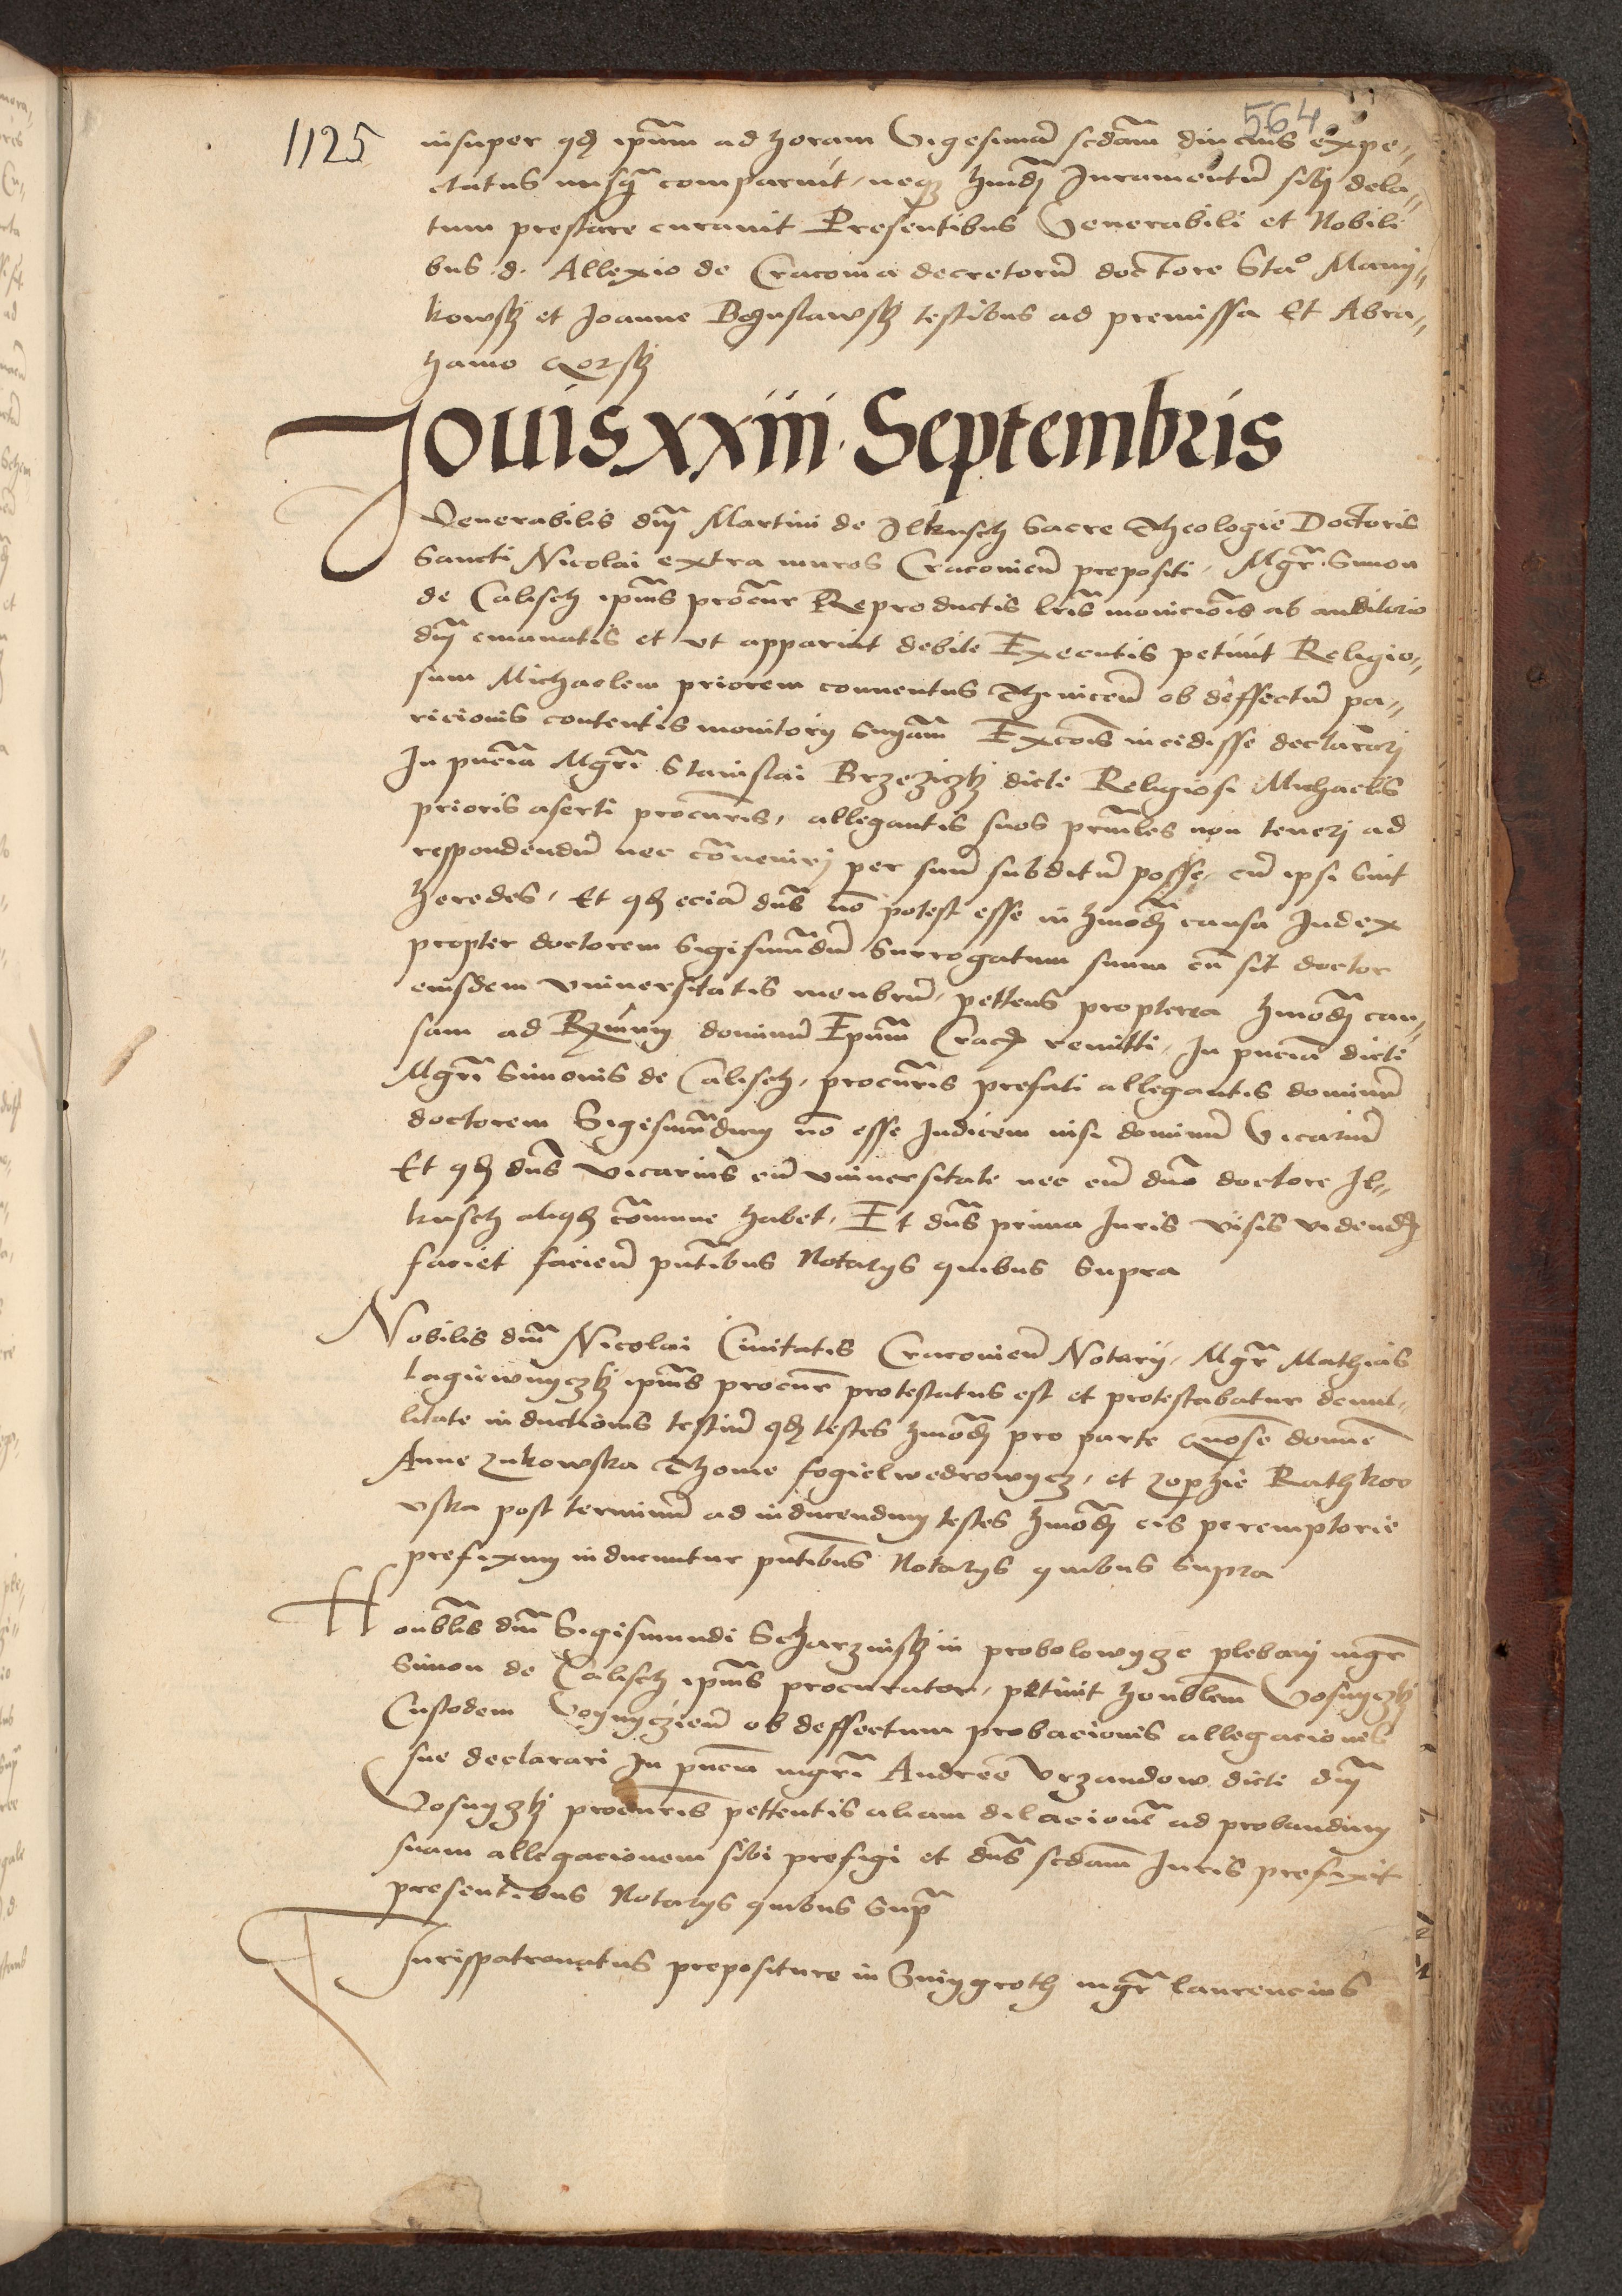 564
1125
insuper qd ipūm ad horam Vigesimā scdam diucius expe„
ctatus nusqȝ comparuit, neqȝ hmōdi Juramentū sibi dela„
tum prestare curauit Presentibus Venerabili et Nobili
bus d. Allexio de Cracouia decretorū doctore Stao Many„
kowskj et Joanne Boguslawskj testibus ad premissa Et Abra„
hamo
Jouis xxiii Septembris
Venerabilis dnj Martini de Ilkusch Sacre Theologie Doctoris
Sancti Nicolai extra muros Cracouien̄ prepositi, Mgr̄ Simon
de Calisch ipīus procur̄ Reproductis lr̄is monicōis ab auditorio
dnj emanatis et vt apparuit debite Executis petiuit Religio„
sum Michaelem priorem conuentus Thinicen̄ ob deffectū pa„
ricionis contentis monitorij Sniam Excōis incidisse declararj
In pn̄cia Mgr̄i Stanislai Brzeziczkj dicti Religiosi Michaelis
prioris aserti procuris, allegantis suos prn̄cles non tenerj ad
respondendū nec cōuenirj per suū subditū posse, cū ipsi sint
heredes, Et qd eciā dn̄s nō potest esse in hmōdj causa Judex
propter doctorem Sigismundū Surrogatum suum cū sit doctor
eiusdem vniuersitatis menbrū, pettens propterea hmōdj cau„
sam ad Rmum dominū Ep̄um Crac̄ remitti, In pn̄ciā dicti
Mgr̄i Simonis de Calisch, procuris prefati allegantis dominū
doctorem Sigesmundum nō esse Judicem nisi dominū Vicariū
Et qd dn̄s vicarius cū vniuersitate nec cū dn̄o doctore Il„
kusch aliqd cōmune habet, Et dn̄s prima Juris visis videndis
faciet facien̄ pn̄tibus Notarijs quibus supra
Nobilis dnj Nicolai Ciuitatis Cracouien̄ Notarij, Mgr̄ Mathias
Lagiewnyczkj ipīus procur̄ protestatus est et protestabatur denul„
litate inductionis testiū qd testes hmōdj pro parte Gnōse domne
Anne zukowska Thome fogielwedrowycz, et zophie Rathkoo
vska post terminū ad inducendum testes hmōdj eis peremptorie
prefixum inducuntur pn̄tibus Notarijs quibus supra
Honblis dnj Sigismundi Scharzinskj in probolowycze plebanj mgr̄
Simon de Calisch ipīus procurator, petiuit honblem Vosnyczkj
Custodem Voynyczien̄ ob deffectum probacionis allegacionis
sue declarari In pn̄cia mgr̄i Andree Vrzandow dicti dnj
Vosnyczkj procuris pettentis aliam dilacionē ad probandum
suam allegacionem sibi prefigi et dn̄s scdam Juris prefixit
presentibus Notarijs quibus supr̄
Jurispatronatus prepositure in Snijgroth mgr̄ laurencius